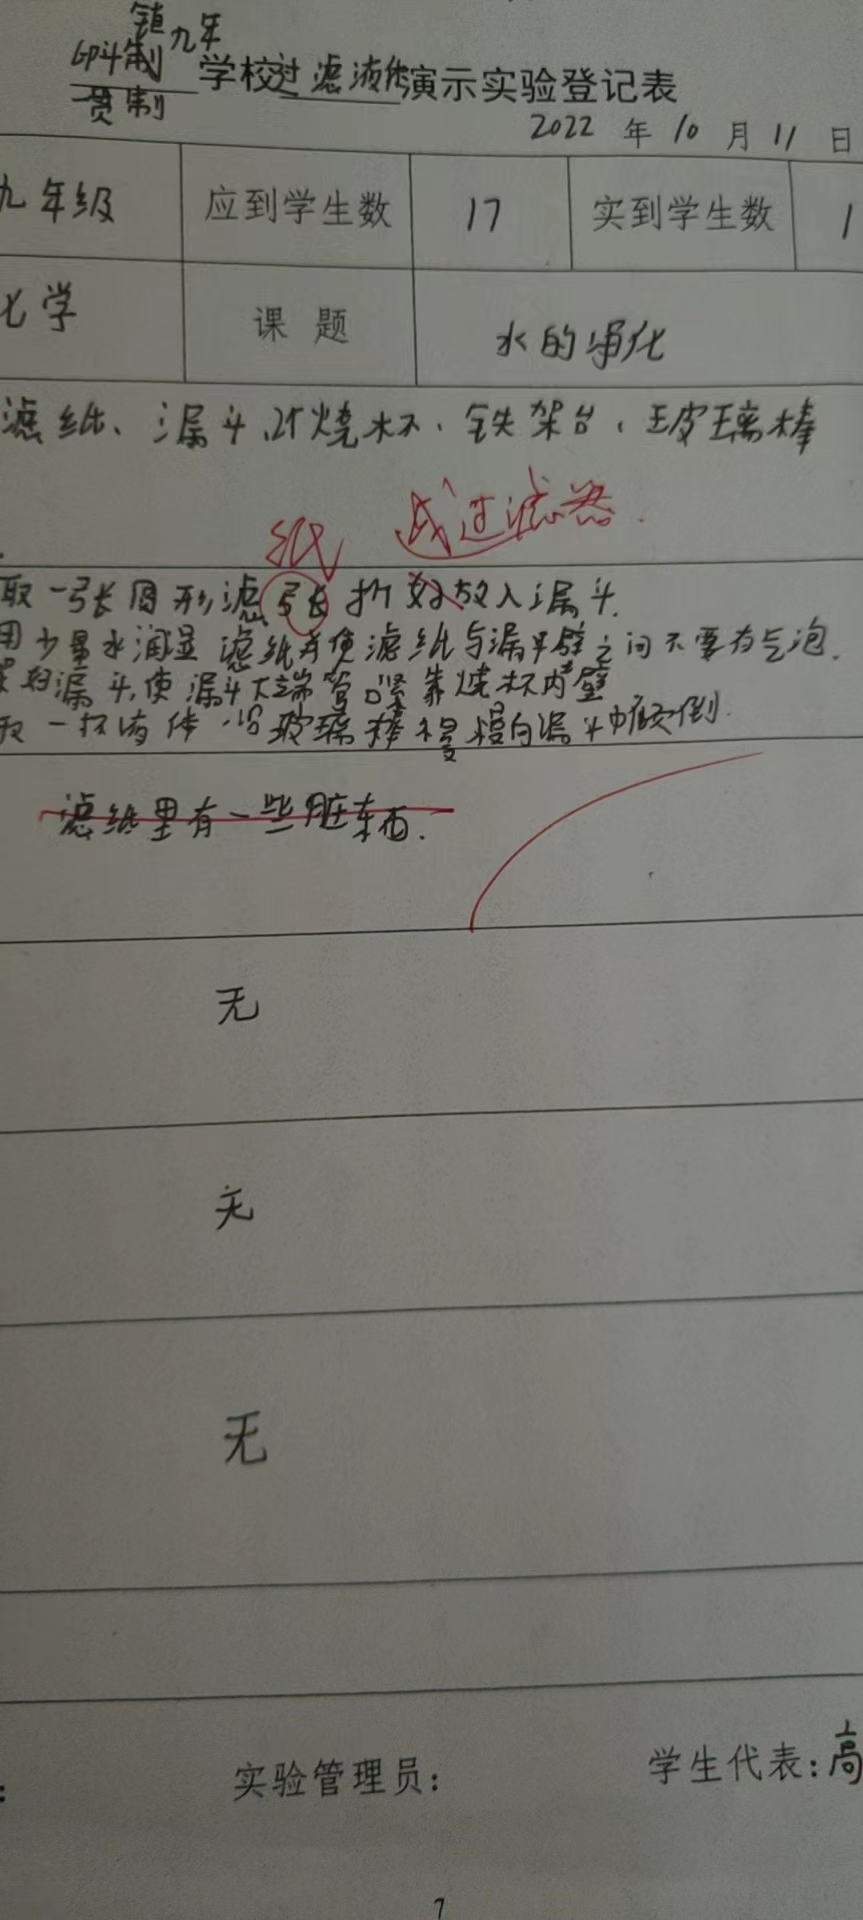 镇
九年
制
贯制
学校过滤液体演示实验登记表
2022 年 10 月 11 日
九年级 应到学生数 17 实到学生数 1
化学 课题 水的净化
滤纸、漏斗、2个烧杯、铁架台、玻璃棒
纸 成过滤器.
取一张圆形滤张折好放入漏斗.
用少量水润湿滤纸并使滤纸与漏斗壁之间不要有气泡.
漏斗,使漏斗下端管口紧靠烧杯内壁
取一杯液体沿玻璃棒慢慢向漏斗中倾倒.
滤纸里有一些脏东西.
无
无
无
实验管理员: 学生代表:高
7